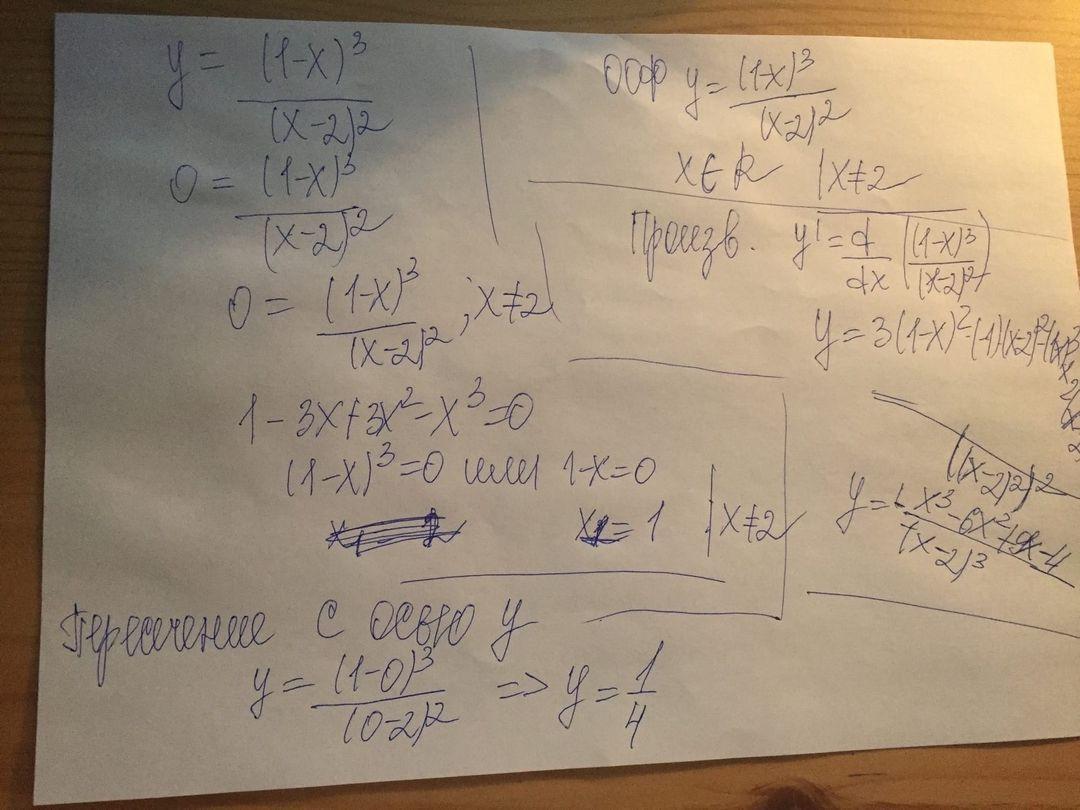 y = (1-x)³/(x-2)²
0 = (1-x)³/(x-2)²
0 = (1-x)³/(x-2)² ; x≠2
1-3x+3x²-x³=0
(1-x)³=0 или 1-x=0
x=1 | x≠2
Пересечение с осью y
y = (1-0)³/(0-2)² => y = 1/4
ООФ y = (1-x)³/(x-2)²
x∈R | x≠2
Произв. y' = d/dx ((1-x)³/(x-2)²)
y = 3(1-x)²·(-1)(x-2)²-(1-x)³
((x-2)²)²
y = - x³-6x²+9x-4/(x-2)³